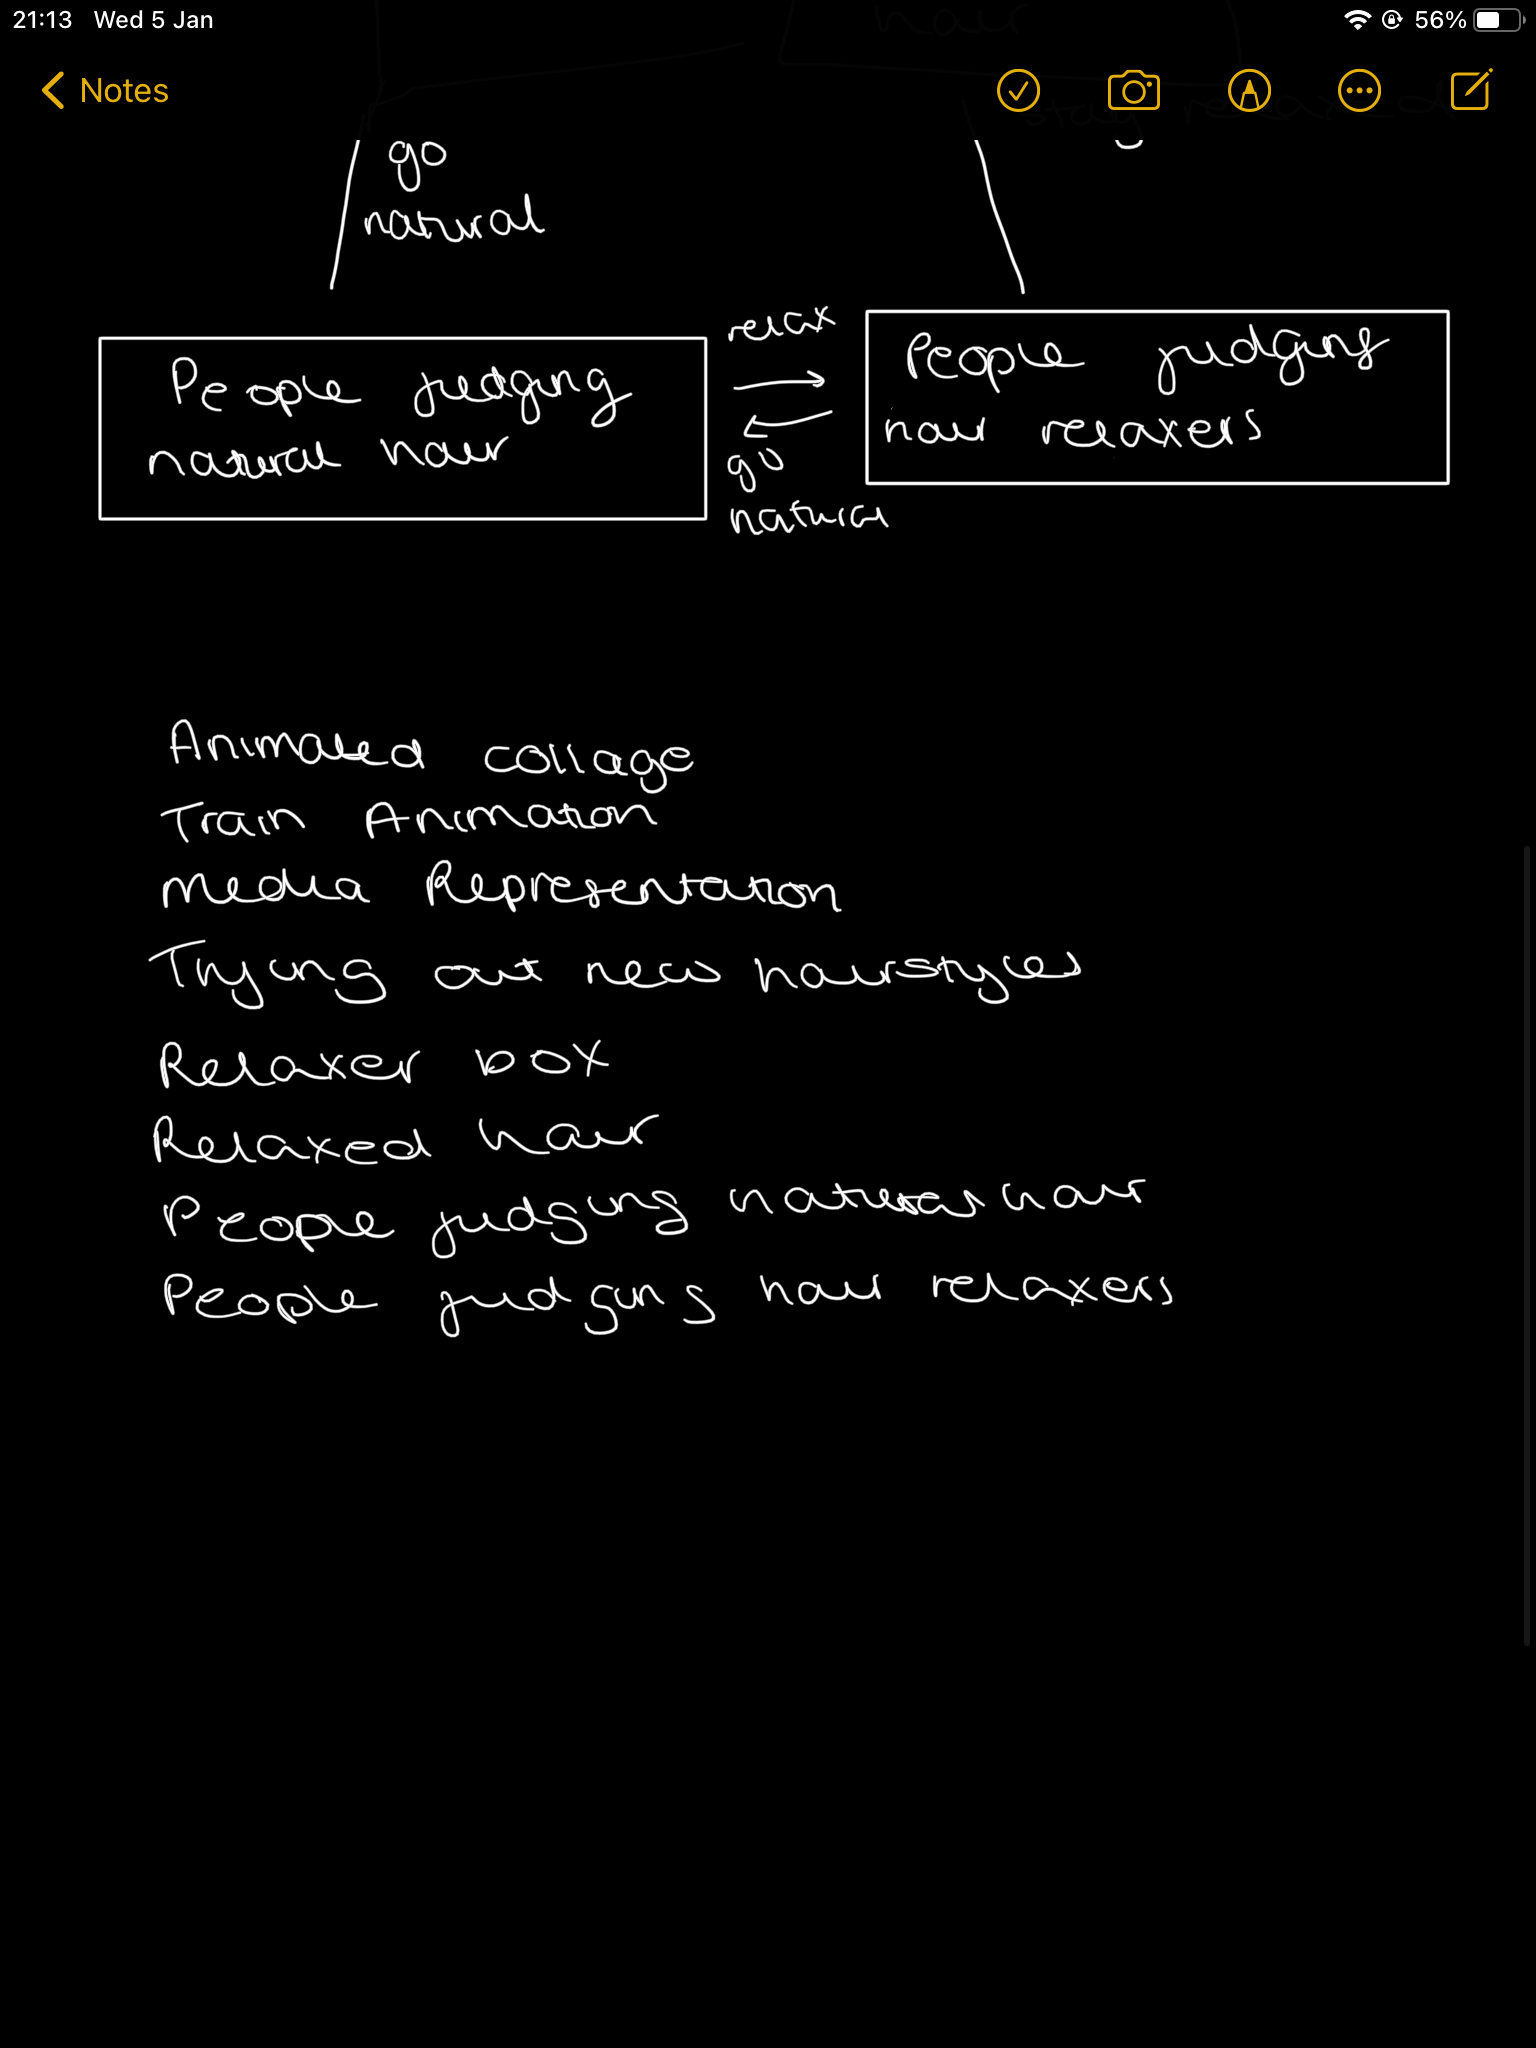 21:13 Wed 5 Jan 56%
hair
Notes
stay relaxed
go
natural
relax
People judging
natural hair
People judging
hair relaxers
go
natural
Animated collage
Train Animation
Media Representation
Trying out new hairstyles
Relaxer box
Relaxed hair
People judging natural hair
People judging hair relaxers